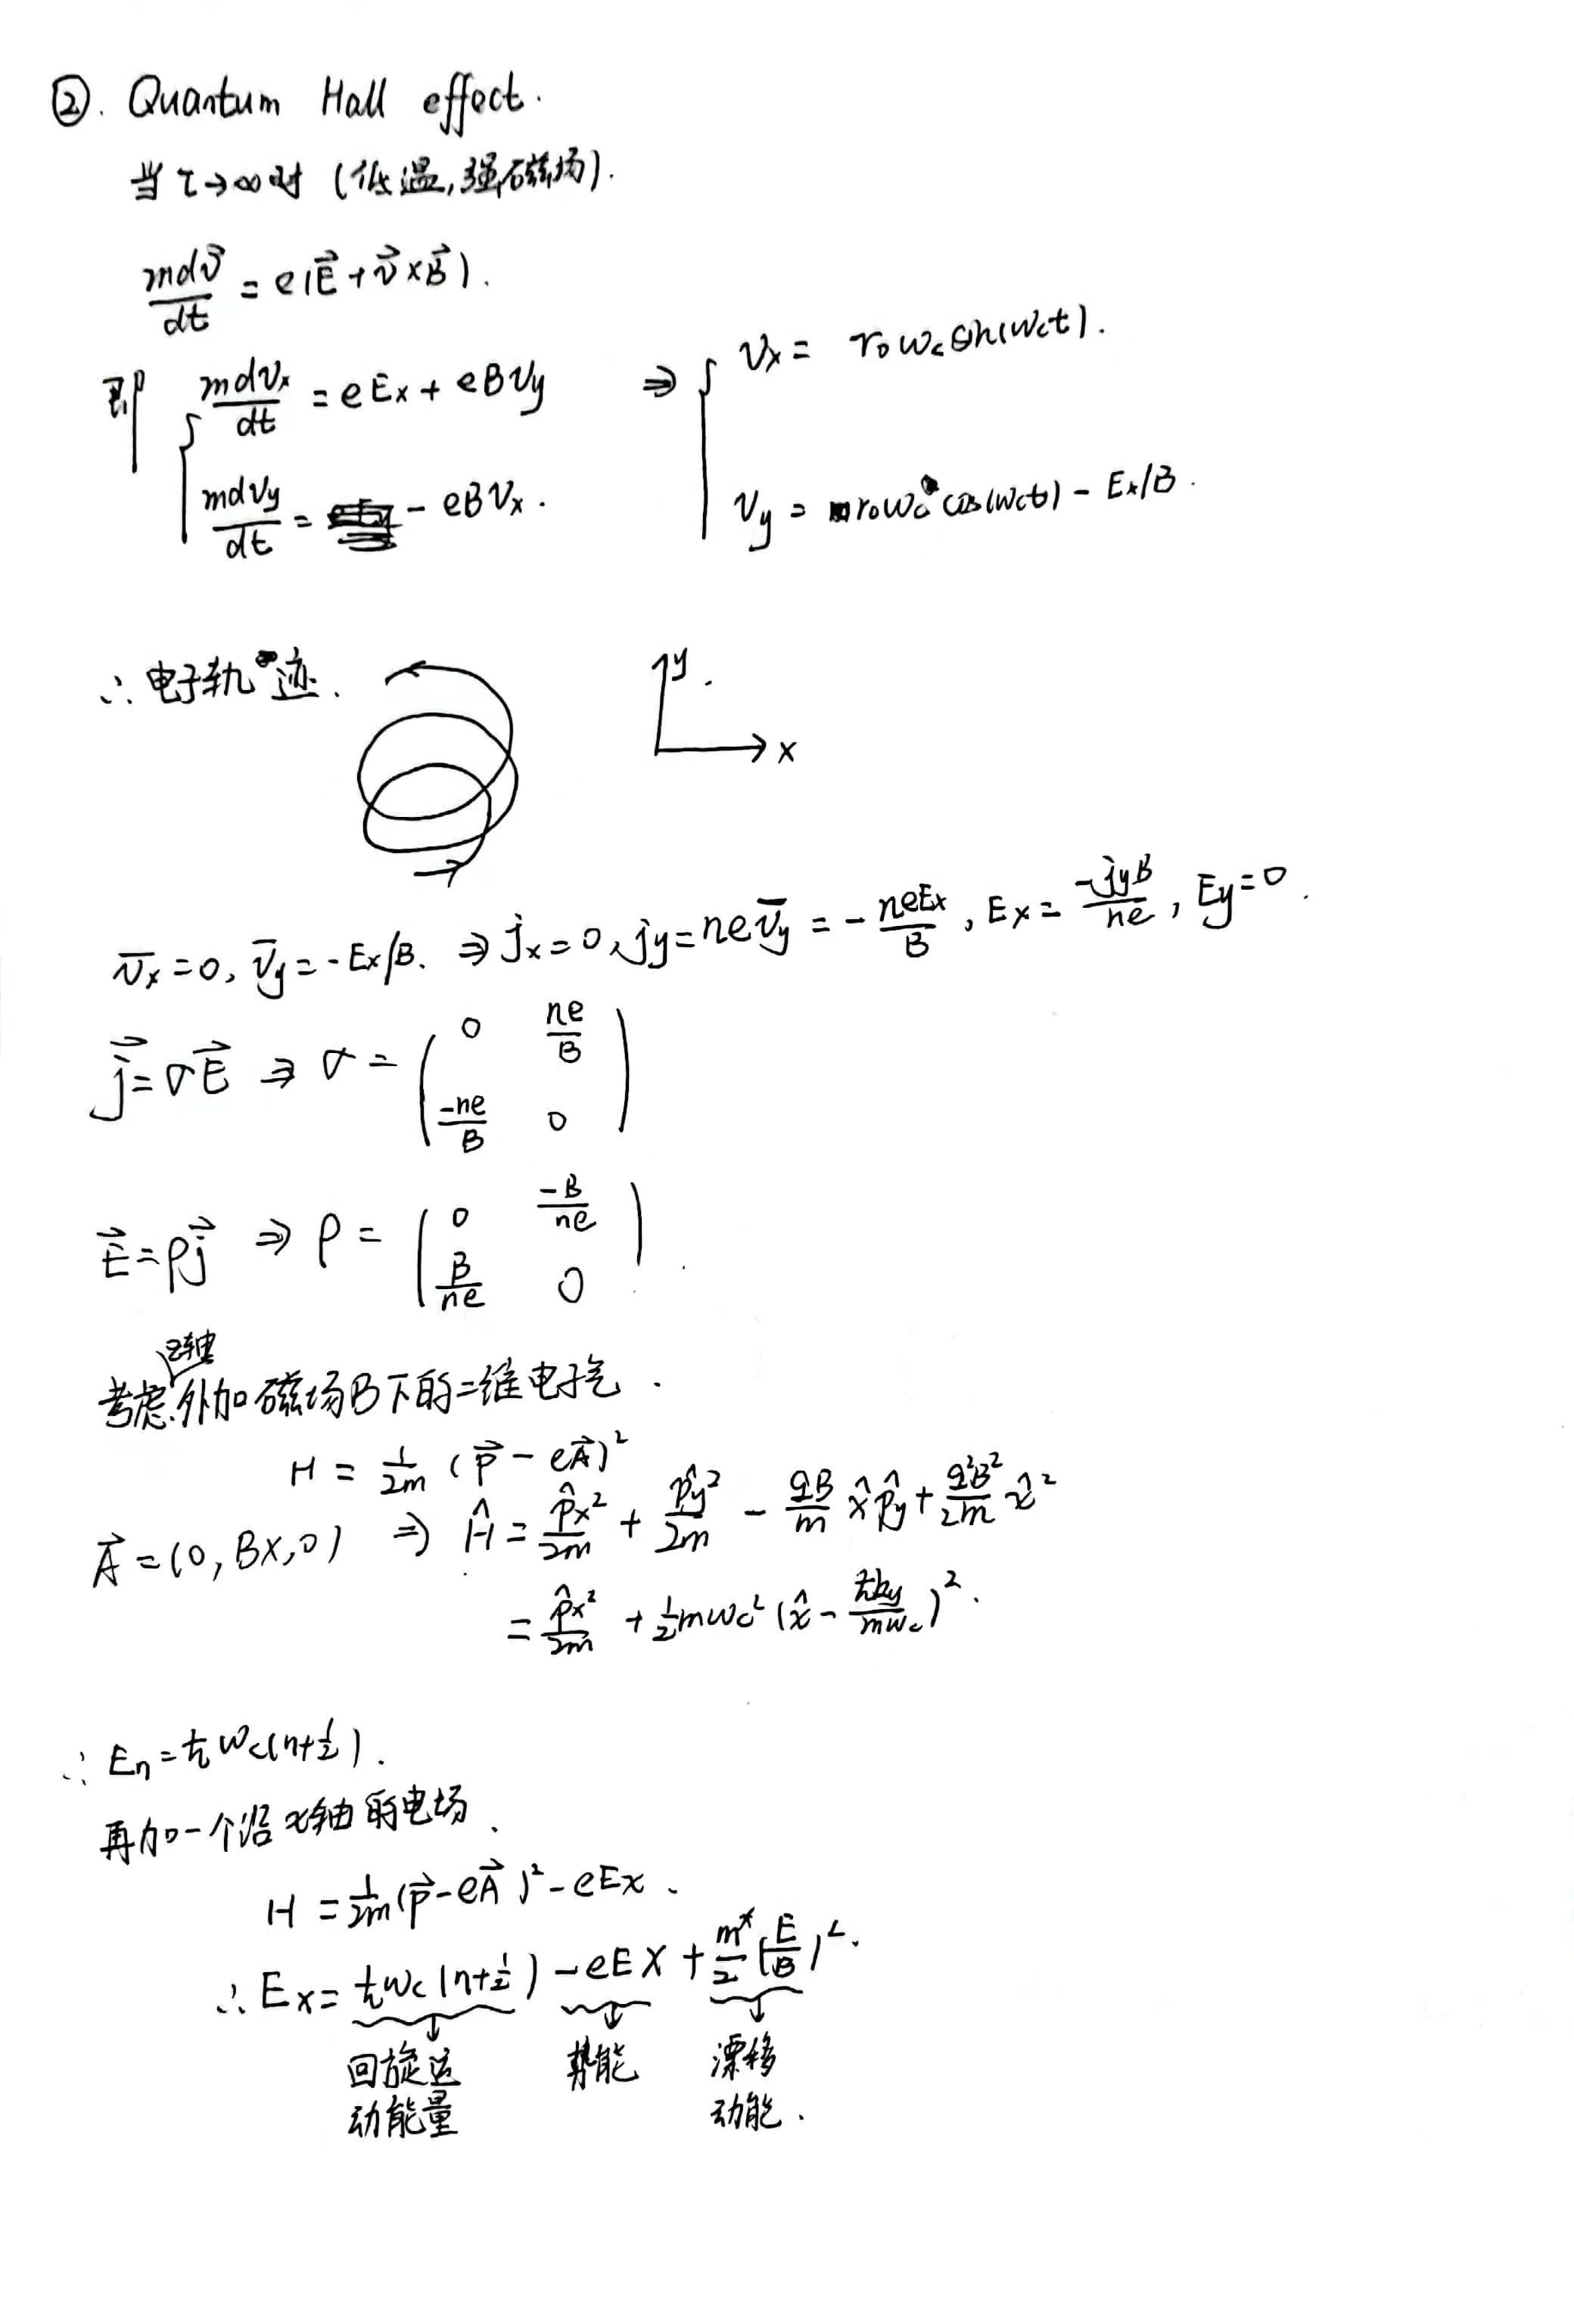 ②. Quantum Hall effect.
当 τ→∞时 (低温,强磁场).
mdv⃗/dt = e(E⃗ + v⃗×B⃗).
即 { mdvx/dt = eEx + eBvy ⇒ { vx = r₀ωc sin(ωct).
mdvy/dt = - eBvx. vy = r₀ωc cos(ωct) - Ex/B.
∴ 电子轨迹. y.
x
v̄x=0, v̄y=-Ex/B. ⇒ jx=0, jy=nev̄y = -neEx/B, Ex = -jyB/ne, Ey=0.
j⃗=σE⃗ ⇒ σ = ( 0 ne/B
-ne/B 0 )
E⃗=ρj⃗ ⇒ ρ = ( 0 -B/ne
B/ne 0 ).
z轴
考虑外加磁场B下的二维电子气.
H = 1/2m (p⃗ - eA⃗)²
A⃗=(0, Bx, 0) ⇒ Ĥ = p̂x²/2m + p̂y²/2m - qB/m x̂p̂y + q²B²/2m x̂²
= p̂x²/2m + ½mωc²(x̂ - ħky/mωc)².
∴ En = ħωc(n+½).
再加一个沿x轴的电场.
H = 1/2m(p⃗-eA⃗)² - eEx.
∴ Ex = ħωc(n+½) - eEX + m*/2 (E/B)².
回旋运 势能 漂移
动能量 动能.